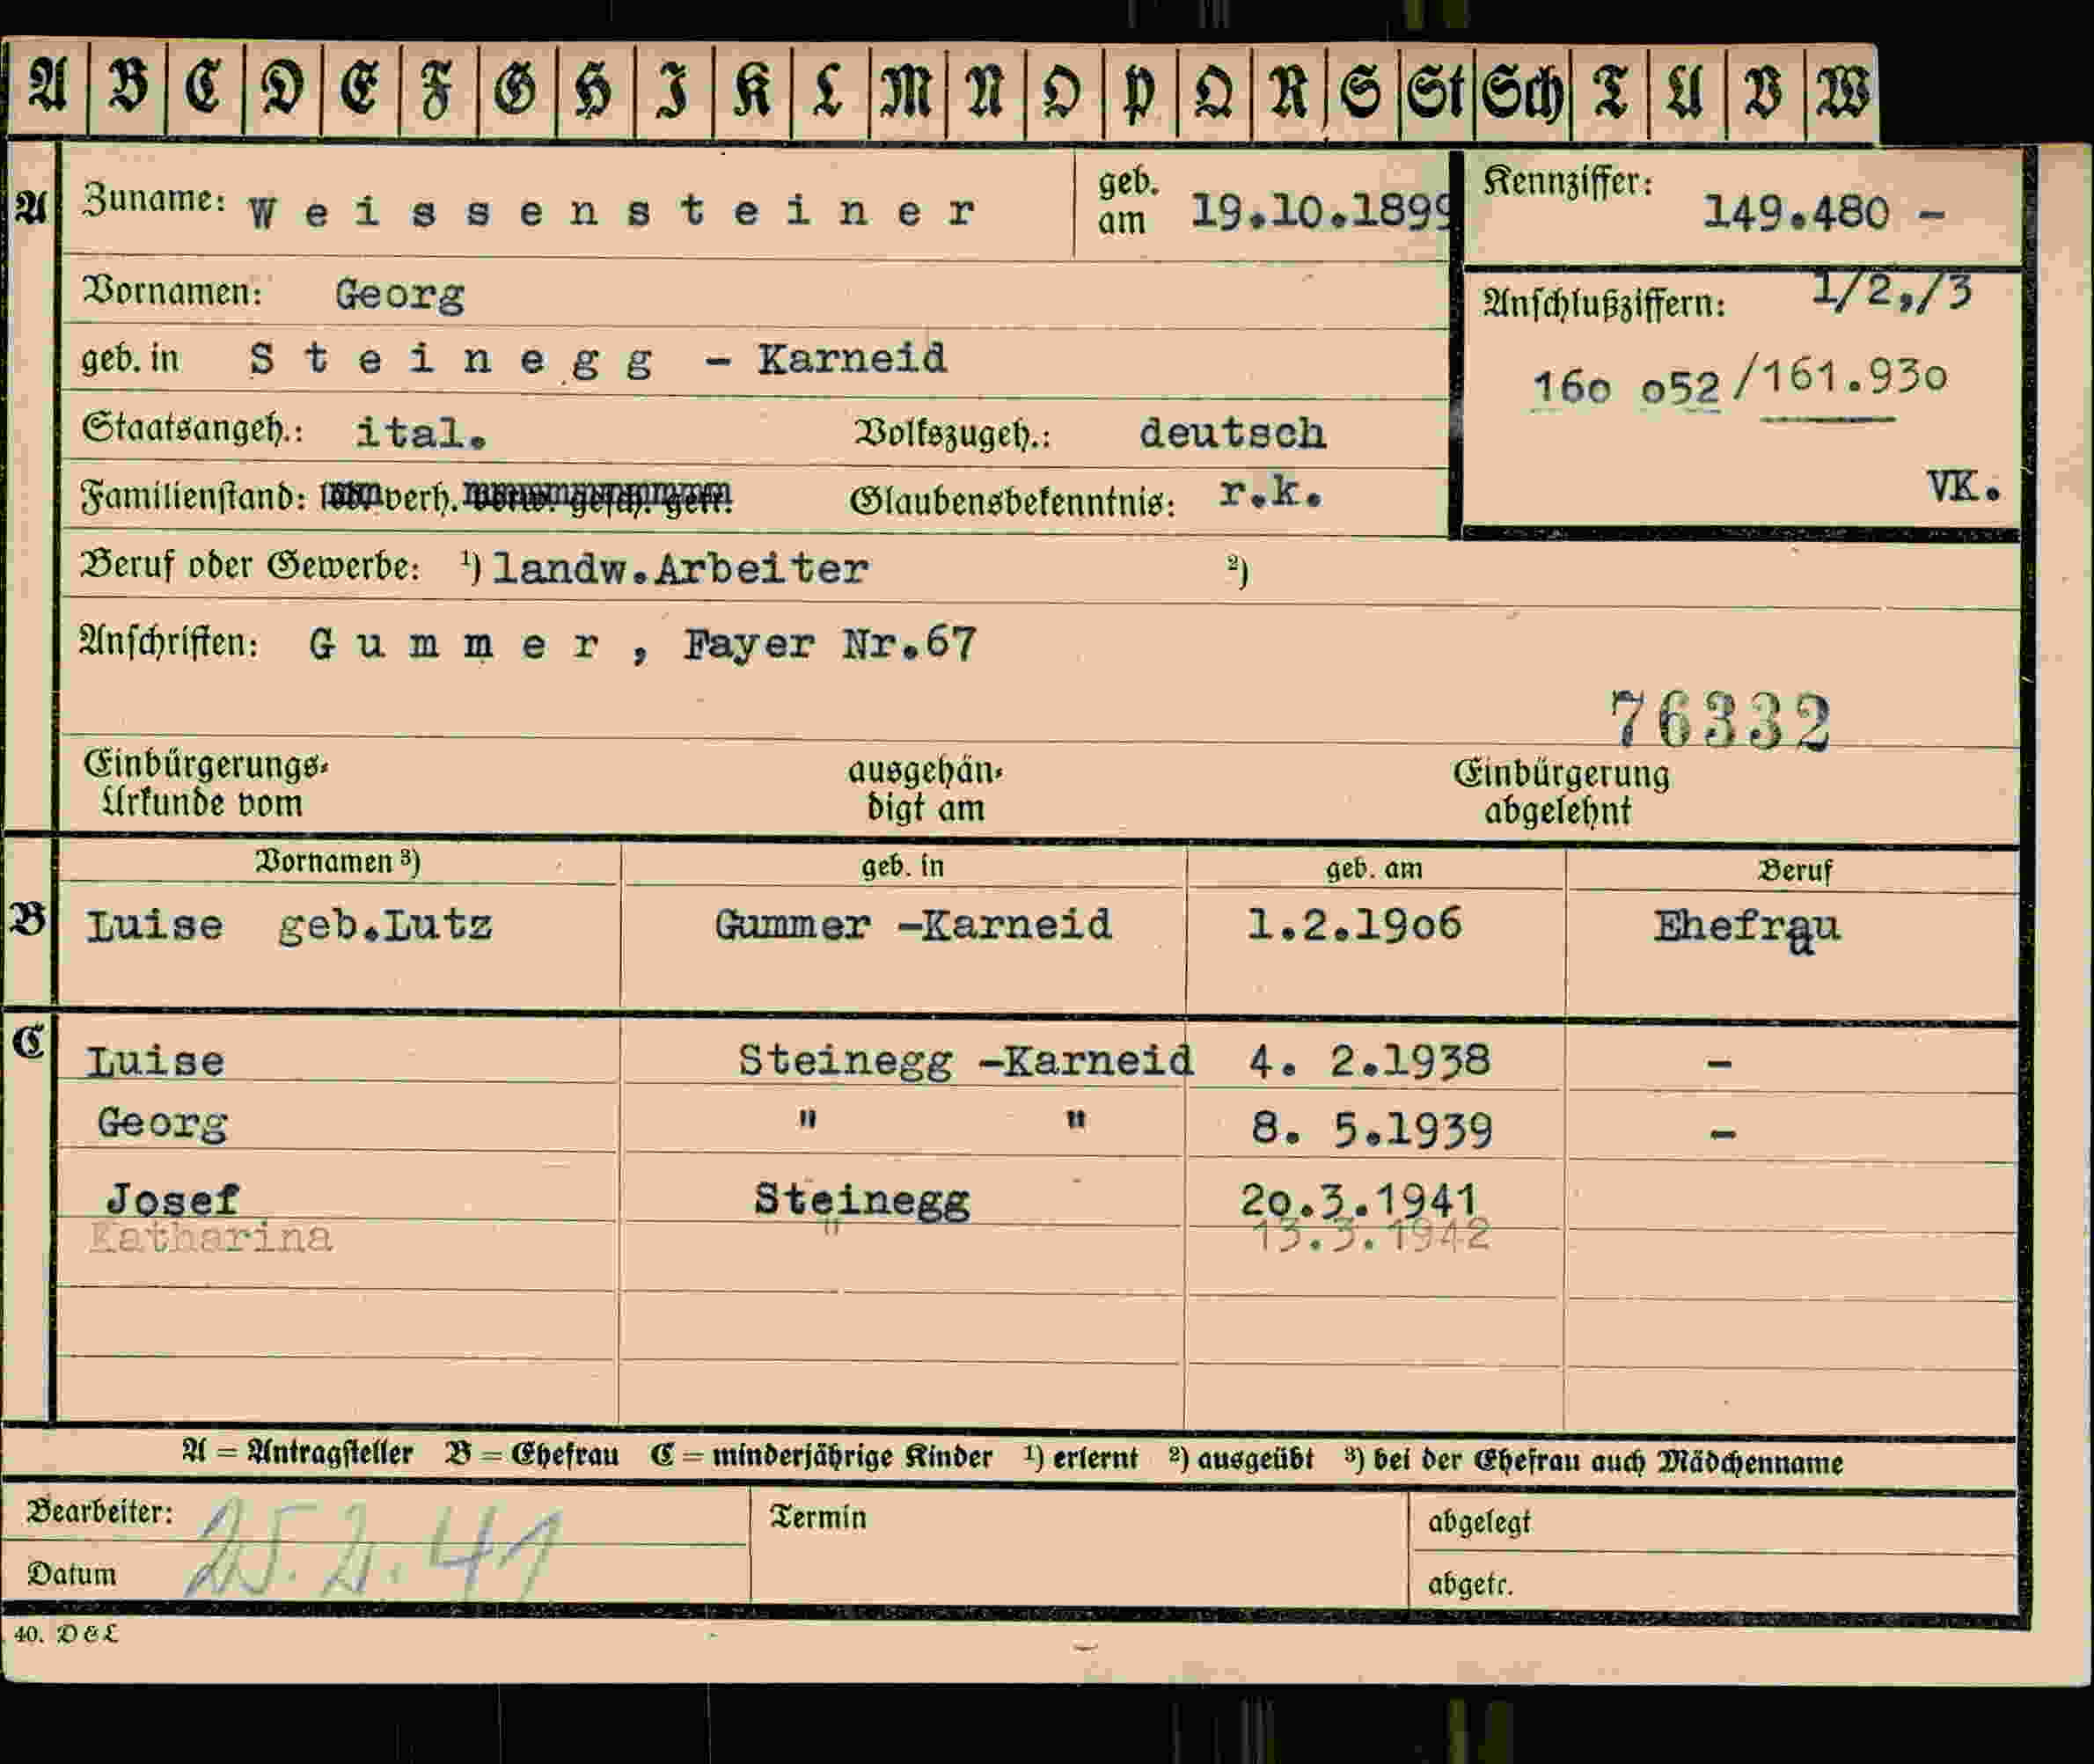 A B C D E F G H I K L M N O P Q R S St Sch T U V W
A Zuname: Weissensteiner geb. am 19.10.1899 Kennziffer: 149.480 -
Vornamen: Georg Anschlußziffern: 1/2,/3
geb. in Steinegg - Karneid 160 052/161.930
Staatsangeh.: ital. Volkszugeh.: deutsch
Familienstand: verh. gesch. getr. Glaubensbekenntnis: r.k. VK.
Beruf oder Gewerbe: ¹) landw.Arbeiter ²)
Anschriften: Gummer, Fayer Nr.67
76332
Einbürgerungs- ausgehän- Einbürgerung
Urkunde vom digt am abgelehnt
Vornamen ³) geb. in geb. am Beruf
B Luise geb.Lutz Gummer -Karneid 1.2.1906 Ehefrau
C Luise Steinegg -Karneid 4. 2.1938 -
Georg " " 8. 5.1939 -
Josef Steinegg 20.3.1941
Katharina " 13.3.1942
A = Antragsteller B = Ehefrau C = minderjährige Kinder ¹) erlernt ²) ausgeübt ³) bei der Ehefrau auch Mädchenname
Bearbeiter: Termin abgelegt
Datum 25.2.41 abgetr.
40. D & L